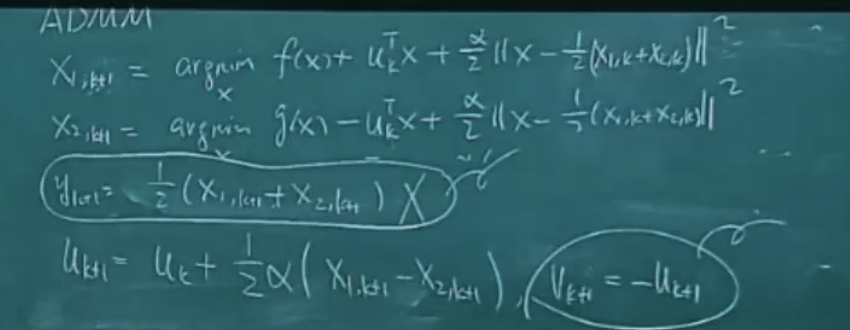 ADMM
X₁,ₖ₊₁ = argmin_x f(x) + uₖᵀx + α/2 ||x - 1/2(x₁,ₖ+x₂,ₖ)||²
X₂,ₖ₊₁ = argmin_x g(x) - uₖᵀx + α/2 ||x - 1/2(x₁,ₖ+x₂,ₖ)||²
yₖ₊₁ = 1/2 (x₁,ₖ₊₁ + x₂,ₖ₊₁) X
uₖ₊₁ = uₖ + 1/2 α(x₁,ₖ₊₁ - x₂,ₖ₊₁), vₖ₊₁ = -uₖ₊₁